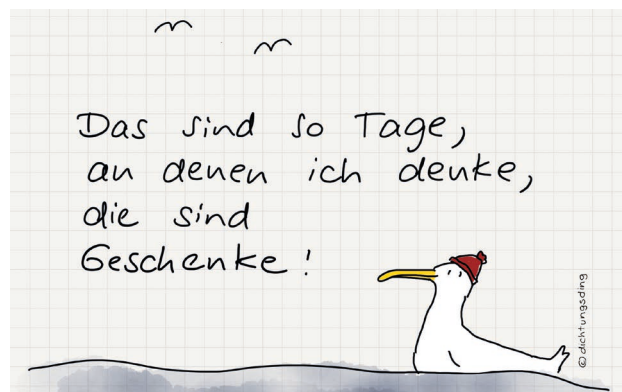 Das sind so Tage,
an denen ich denke,
die sind
Geschenke!
©dichtungsding